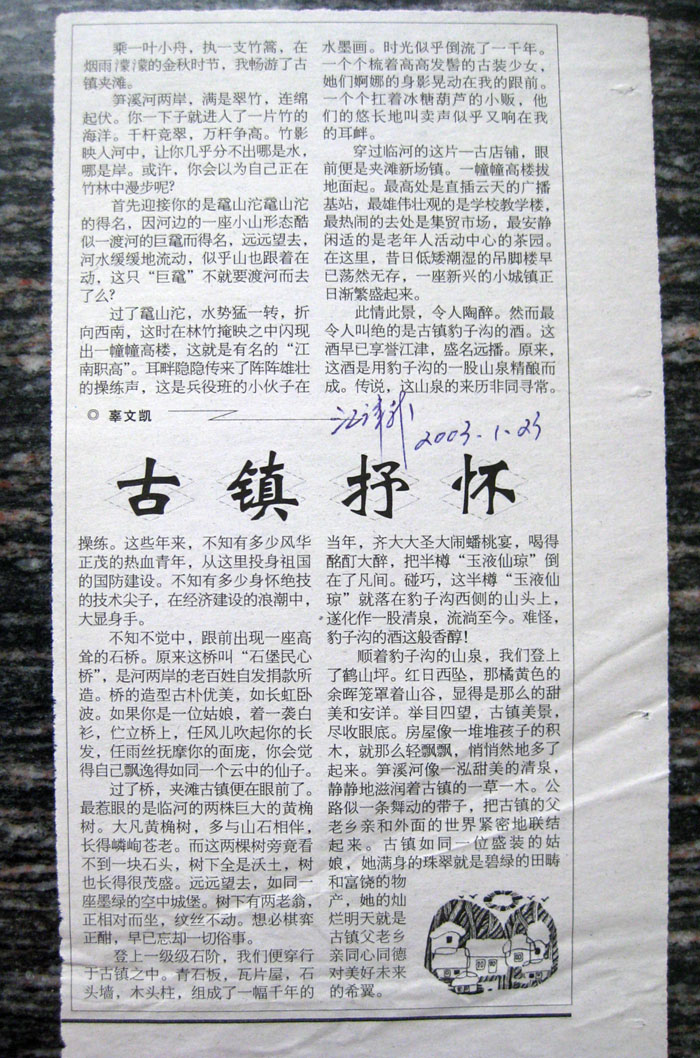 古镇抒怀
◎ 辜文凯
江津报
2003.1.23
乘一叶小舟，执一支竹篙，在
烟雨濛濛的金秋时节，我畅游了古
镇夹滩。
笋溪河两岸，满是翠竹，连绵
起伏。你一下子就进入了一片竹的
海洋。千杆竞翠，万杆争高。竹影
映人河中，让你几乎分不出哪是水，
哪是岸。或许，你会以为自己正在
竹林中漫步呢？
首先迎接你的是鼋山沱鼋山沱
的得名，因河边的一座小山形态酷
似一渡河的巨鼋而得名，远远望去，
河水缓缓地流动，似乎山也跟着在
动，这只“巨鼋”不就要渡河而去
了么？
过了鼋山沱，水势猛一转，折
向西南，这时在林竹掩映之中闪现
出一幢幢高楼，这就是有名的“江
南职高”。耳畔隐隐传来了阵阵雄壮
的操练声，这是兵役班的小伙子在
操练。这些年来，不知有多少风华
正茂的热血青年，从这里投身祖国
的国防建设。不知有多少身怀绝技
的技术尖子，在经济建设的浪潮中，
大显身手。
不知不觉中，跟前出现一座高
耸的石桥。原来这桥叫“石堡民心
桥”，是河两岸的老百姓自发捐款所
造。桥的造型古朴优美，如长虹卧
波。如果你是一位姑娘，着一袭白
衫，伫立桥上，任风儿吹起你的长
发，任雨丝抚摩你的面庞，你会觉
得自己飘逸得如同一个云中的仙子。
过了桥，夹滩古镇便在眼前了。
最惹眼的是临河的两株巨大的黄桷
树。大凡黄桷树，多与山石相伴，
长得嶙峋苍老。而这两棵树旁竟看
不到一块石头，树下全是沃土，树
也长得很茂盛。远远望去，如同一
座墨绿的空中城堡。树下有两老翁，
正相对而坐，纹丝不动。想必棋弈
正酣，早已忘却一切俗事。
登上一级级石阶，我们便穿行
于古镇之中。青石板，瓦片屋，石
头墙，木头柱，组成了一幅千年的
水墨画。时光似乎倒流了一千年。
一个个梳着高高发髻的古装少女，
她们婀娜的身影晃动在我的跟前。
一个个扛着冰糖葫芦的小贩，他
们的悠长地叫卖声似乎又响在我
的耳衅。
穿过临河的这片—古店铺，眼
前便是夹滩新场镇。一幢幢高楼拔
地而起。最高处是直插云天的广播
基站，最雄伟壮观的是学校教学楼，
最热闹的去处是集贸市场，最安静
闲适的是老年人活动中心的茶园。
在这里，昔日低矮潮湿的吊脚楼早
已荡然无存，一座新兴的小城镇正
日渐繁盛起来。
此情此景，令人陶醉。然而最
令人叫绝的是古镇豹子沟的酒。这
酒早已享誉江津，盛名远播。原来，
这酒是用豹子沟的一股山泉精酿而
成。传说，这山泉的来历非同寻常。
当年，齐大大圣大闹蟠桃宴，喝得
酩酊大醉，把半樽“玉液仙琼”倒
在了凡间。碰巧，这半樽“玉液仙
琼”就落在豹子沟西侧的山头上，
遂化作一股清泉，流淌至今。难怪，
豹子沟的酒这般香醇！
顺着豹子沟的山泉，我们登上
了鹤山坪。红日西坠，那橘黄色的
余晖笼罩着山谷，显得是那么的甜
美和安详。举目四望，古镇美景，
尽收眼底。房屋像一堆堆孩子的积
木，就那么轻飘飘，悄悄然地多了
起来。笋溪河像一泓甜美的清泉，
静静地滋润着古镇的一草一木。公
路似一条舞动的带子，把古镇的父
老乡亲和外面的世界紧密地联结
起来。古镇如同一位盛装的姑
娘，她满身的珠翠就是碧绿的田畴
和富饶的物
产，她的灿
烂明天就是
古镇父老乡
亲同心同德
对美好未来
的希翼。